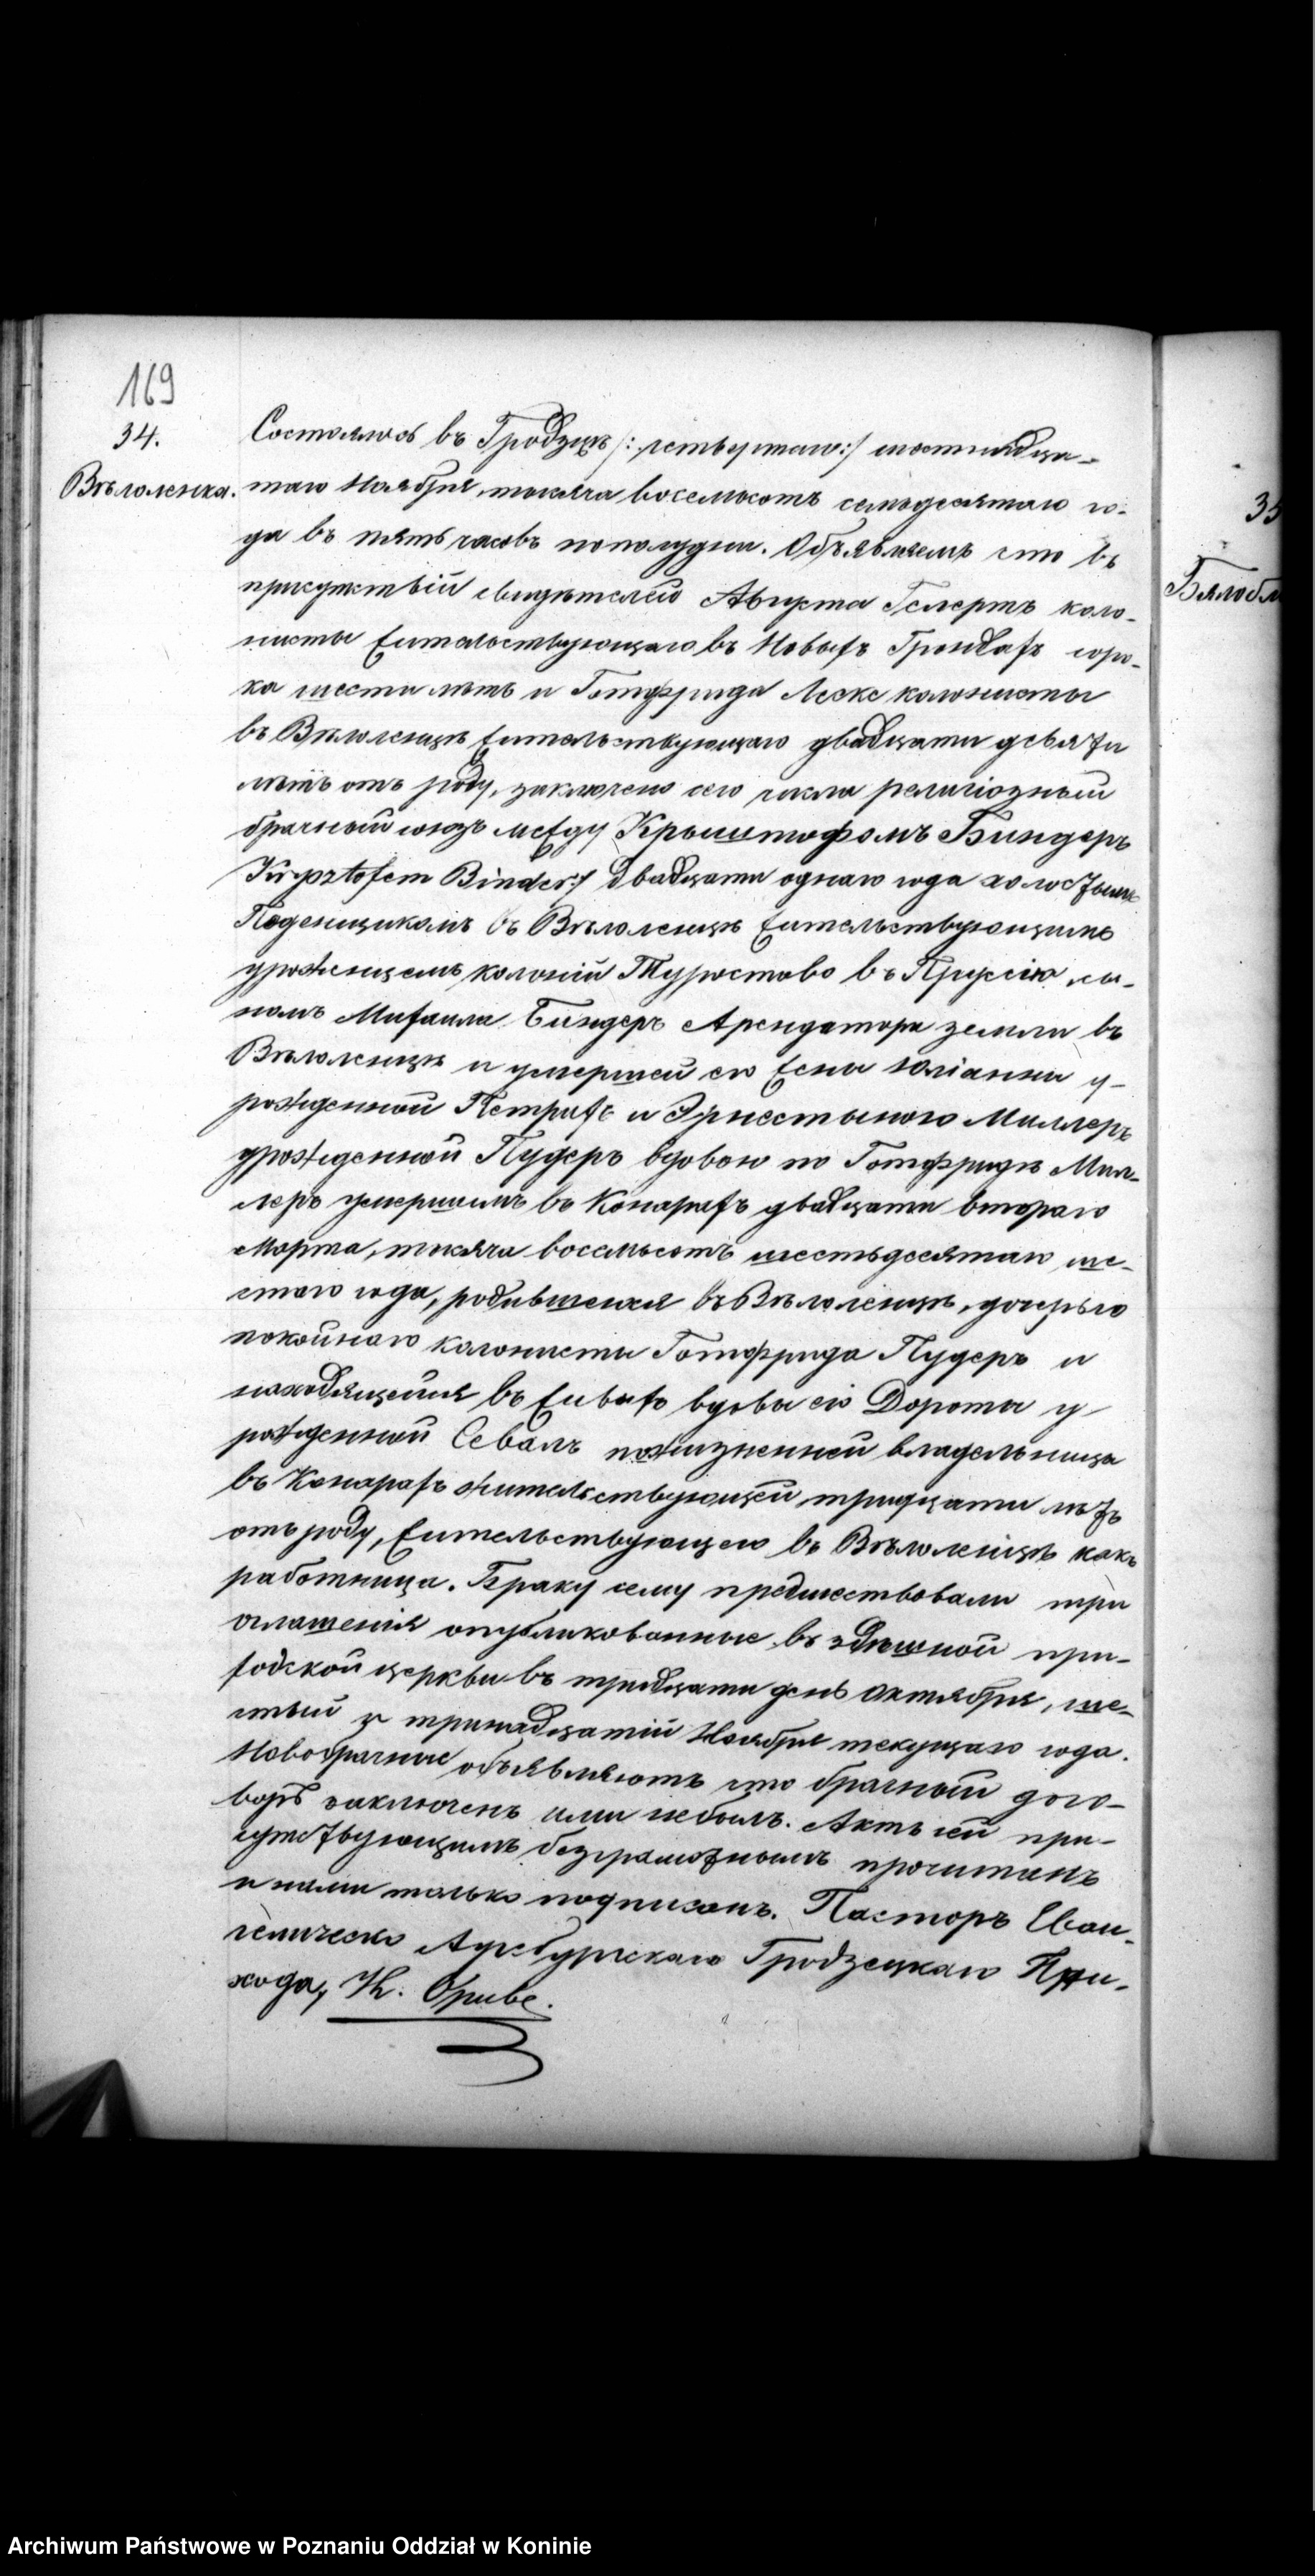 169
34.
Вѣлоленка.
Состоялось въ Гродзцѣ /: четвертаго :/ шестнадца-
таго Ноября тысяча восемьсотъ семьдесятаго го-
да въ пять часовъ пополудни. Объявляемъ что въ
присутствіи свидѣтелей Августа Гелертъ коло-
нисты жительствующаго въ Новыхъ Грондахъ соро-
ка шести лѣтъ и Готфрида Леске колонисты
въ Вѣлоленцѣ жительствующаго двадцати девяти
лѣтъ отъ роду, заключено сего числа религіозный
брачный союзъ между Крыштофомъ Биндеръ
Krysztofem Binder:/ двадцати однаго года холостымъ
Поденщикомъ въ Вѣлоленцѣ жительствующимъ
урожденцемъ колоній Туростово въ Пруссію, сы-
номъ Михаила Биндеръ Арендатора земли въ
Вѣлоленцѣ и умершей его жены Юліанни у-
рожденной Петрихъ и Эрнестыною Миллеръ
урожденной Пудеръ вдовою по Готфридѣ Мил-
леръ умершимъ въ Конарахъ двадцати втораго
Марта, тысяча восемьсотъ шестьдесятаго ше-
стаго года, родившеюся въ Вѣлоленцѣ, дочерью
покойнаго колонисты Готфрида Пудеръ и
находящейся въ живыхъ вдовы его Дороты у-
рожденной Севалъ пожизненней владельницы
въ Конарахъ жительствующей тридцати лѣтъ
отъ роду, жительствующею въ Вѣлоленцѣ какъ
работница. Браку сему предшествовали три
оглашенія опубликованные въ здѣшной при-
ходской церкви въ тридцати день Октября, ше-
стый и тринадцатій Ноября текущаго года.
Новобрачные объявляютъ что брачный дого-
воръ заключенъ ими небылъ. Актъ сей при-
сутствующимъ безграмотнымъ прочитанъ
и нами только подписанъ. Пасторъ Еван-
геличecко Аугсбургскаго Гродзецкаго При-
хода,
35
Бялобл
Archiwum Państwowe w Poznaniu Oddział w Koninie